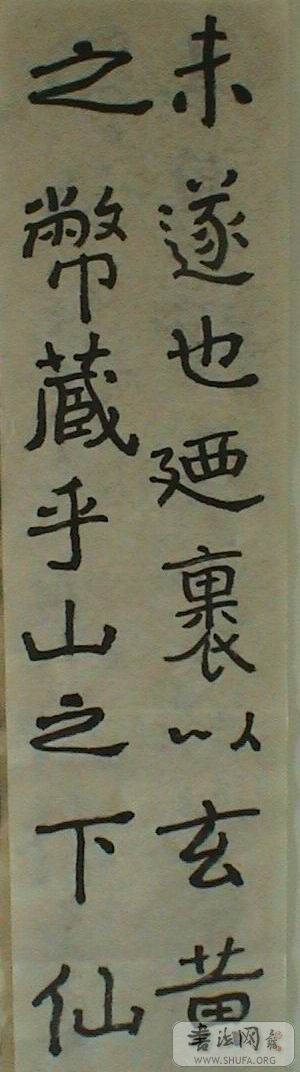 未遂也廼裹以玄黄
之幣藏乎山之下仙
书法网
WWW.SHUFA.ORG